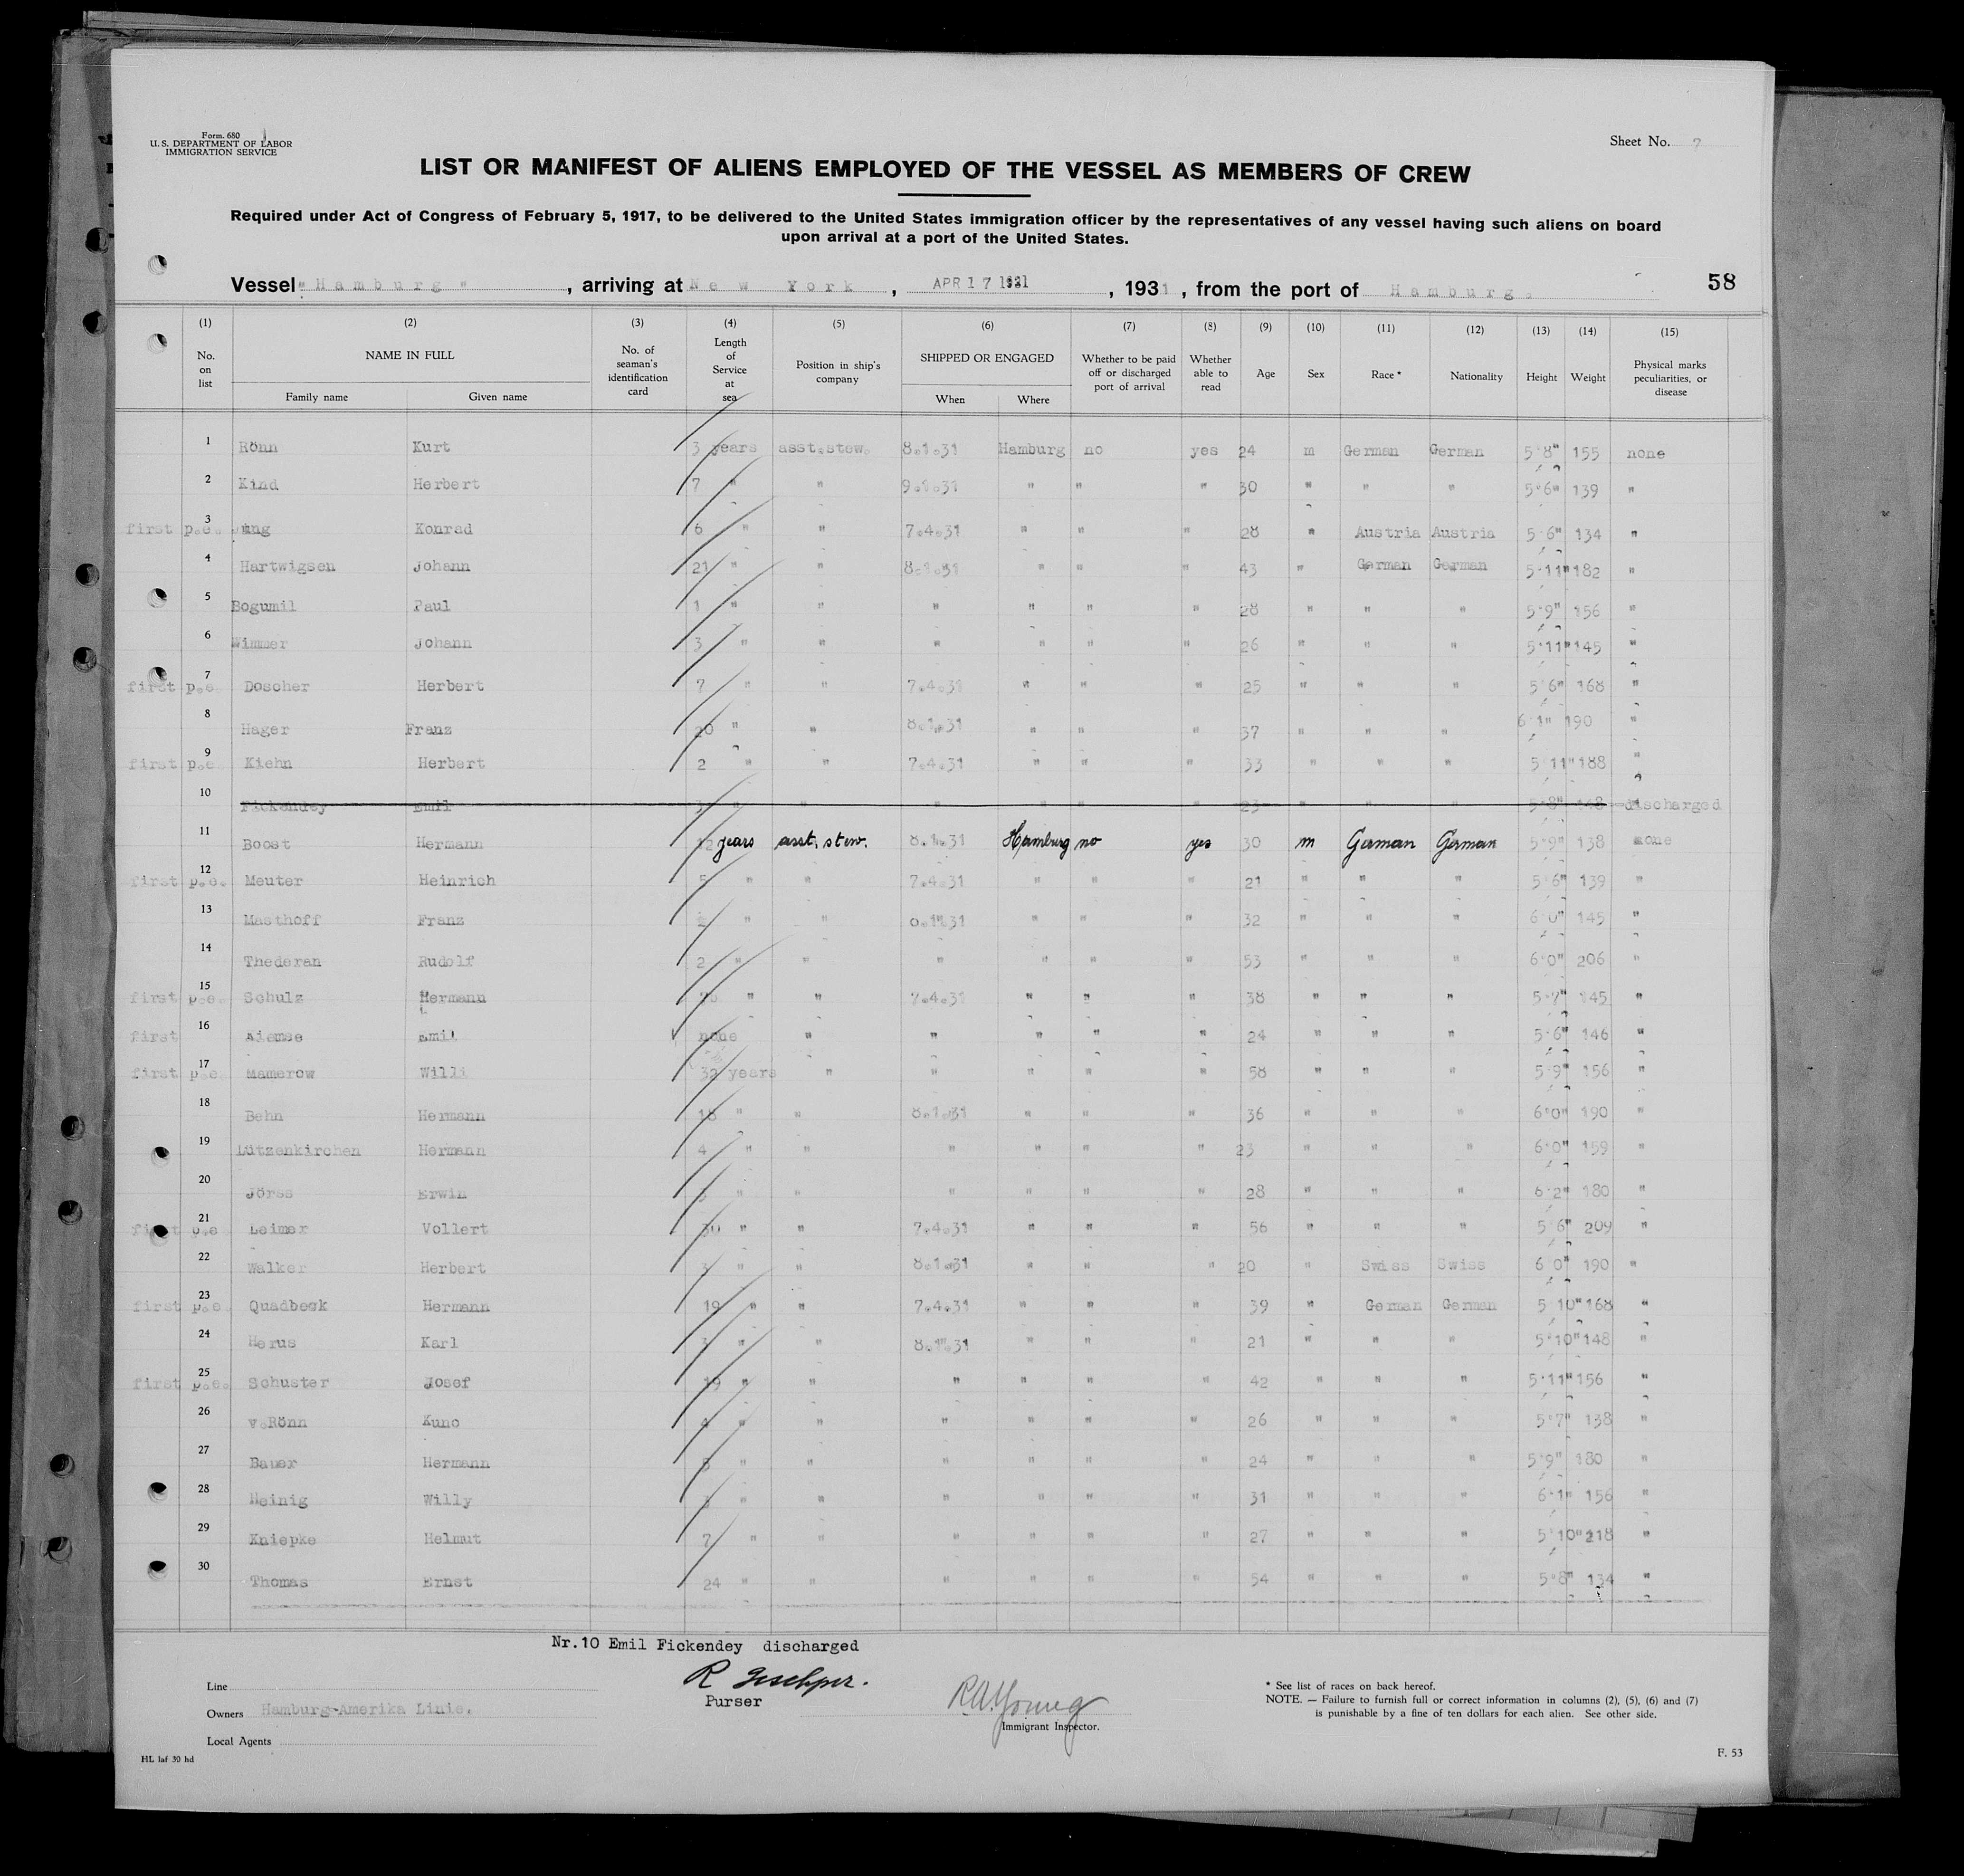 Form. 680
U. S. DEPARTMENT OF LABOR
IMMIGRATION SERVICE
Sheet No. 7
LIST OR MANIFEST OF ALIENS EMPLOYED OF THE VESSEL AS MEMBERS OF CREW
Required under Act of Congress of February 5, 1917, to be delivered to the United States immigration officer by the representatives of any vessel having such aliens on board
upon arrival at a port of the United States.
Vessel "Hamburg", arriving at New York, APR 17 1931, 1931, from the port of Hamburg. 58
(1) (2) (3) (4) (5) (6) (7) (8) (9) (10) (11) (12) (13) (14) (15)
No. on list NAME IN FULL Family name Given name No. of seaman's identification card Length of Service at sea Position in ship's company SHIPPED OR ENGAGED When Where Whether to be paid off or discharged port of arrival Whether able to read Age Sex Race * Nationality Height Weight Physical marks peculiarities, or disease
1 Rönn Kurt 3 years asst.stew. 8.1.31 Hamburg no yes 24 m German German 5'8" 155 none
2 Kind Herbert 7 " " 9.1.31 " " " 30 " " " 5'6" 139 "
first p.e. 3 Konrad 6 " " 7.4.31 " " " 28 " Austria Austria 5'6" 134 "
4 Hartwigsen Johann 21 " " 8.1.31 " " " 43 " German German 5'11" 182 "
5 Bogumil Paul 1 " " " " " " 28 " " " 5'9" 156 "
6 Wimmer Johann 3 " " " " " " 26 " " " 5'11" 145 "
first p.e. 7 Doscher Herbert 7 " " 7.4.31 " " " 25 " " " 5'6" 168 "
8 Hager Franz 20 " " 8.1.31 " " " 37 " " " 6'1" 190 "
first p.e. 9 Kiehn Herbert 2 " " 7.4.31 " " " 33 " " " 5'11" 188 "
10 Fickendey Emil 3 " " " " " " 23 " " " 5'8" 148 discharged
11 Boost Hermann 12 years asst. stew. 8.1.31 Hamburg no yes 30 m German German 5'9" 138 none
first p.e. 12 Meuter Heinrich 5 " " 7.4.31 " " " 21 " " " 5'6" 139 "
13 Masthoff Franz " " " " " 32 " " " 6'0" 145 "
14 Thederan Rudolf 2 " " " " " " 53 " " " 6'0" 206 "
first p.e. 15 Schulz Hermann " " 7.4.31 " " " 38 " " " 5'7" 145 "
first 16 Emil none " " " " " 24 " " " 5'6" 146 "
first p.e. 17 Mamerow Willi 32 years " " " " " 58 " " " 5'9" 156 "
18 Behn Hermann 18 " " 8.1.31 " " " 36 " " " 6'0" 190 "
19 Lützenkirchen Hermann 4 " " " " " " 23 " " " 6'0" 159 "
20 Jörss Erwin 3 " " " " " " 28 " " " 6'2" 180 "
first p.e 21 Leimer Vollert 30 " " 7.4.31 " " " 56 " " " 5'6" 209 "
22 Walker Herbert 3 " " 8.1.31 " " " 20 " Swiss Swiss 6'0" 190 "
first p.e. 23 Quadbeck Hermann 19 " " 7.4.31 " " " 39 " German German 5'10" 168 "
24 Herus Karl 3 " " 8.1.31 " " " 21 " " " 5'10" 148 "
first p.e. 25 Schuster Josef 19 " " " " " " 42 " " " 5'11" 156 "
26 v.Rönn Kuno 4 " " " " " " 26 " " " 5'7" 138 "
27 Bauer Hermann " " " " " " 24 " " " 5'9" 180 "
28 Heinig Willy 3 " " " " " " 31 " " " 6'1" 156 "
29 Kniepke Helmut 7 " " " " " " 27 " " " 5'10" 218 "
30 Thomas Ernst 24 " " " " " " 54 " " " 5'8" 134 "
Nr.10 Emil Fickendey discharged
Line
Purser
Owners Hamburg-Amerika Linie.
R.A. Young
Immigrant Inspector.
Local Agents
* See list of races on back hereof.
NOTE. — Failure to furnish full or correct information in columns (2), (5), (6) and (7)
is punishable by a fine of ten dollars for each alien. See other side.
HL laf 30 hd
F. 53